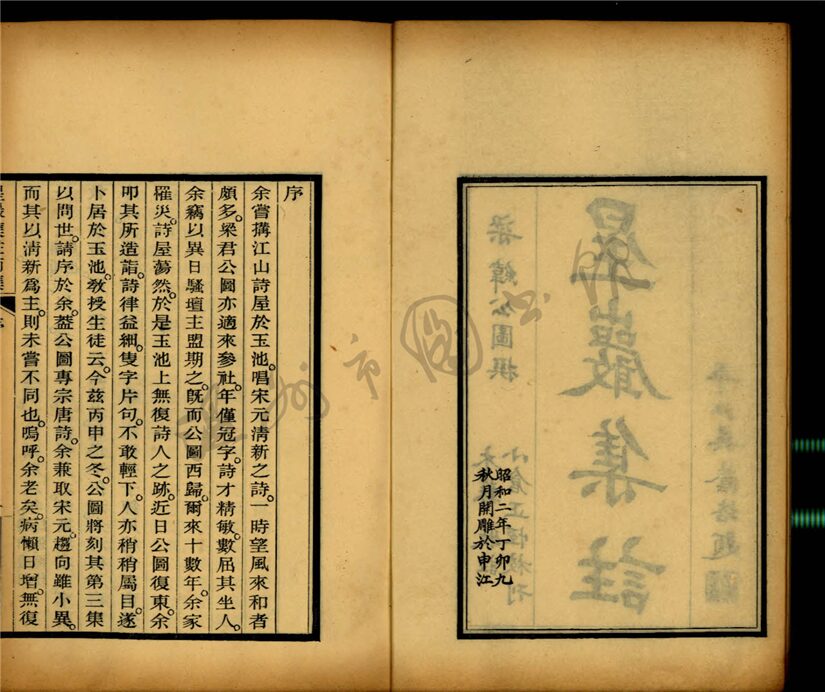 昭和二年丁卯九
秋月開雕於申江
星巖集註
梁緯公圖撰
序
余嘗搆江山詩屋於玉池。唱宋元清新之詩。一時望風來和者
頗多。梁君公圖亦適來參社。年僅冠字。詩才精敏。數屈其坐人。
余竊以異日騷壇主盟期之。旣而公圖西歸。爾來十數年。余家
罹災。詩屋蕩然。於是玉池上無復詩人之跡。近日公圖復東。余
叩其所造詣。詩律益細。隻字片句。不敢輕下。人亦稍稍屬目。遂
卜居於玉池。敎授生徒云。今玆丙申之冬。公圖將刻其第三集
以問世。請序於余。葢公圖專宗唐詩。余兼取宋元。趨向雖小異。
而其以清新爲主。則未嘗不同也。嗚呼。余老矣。病懶日增。無復